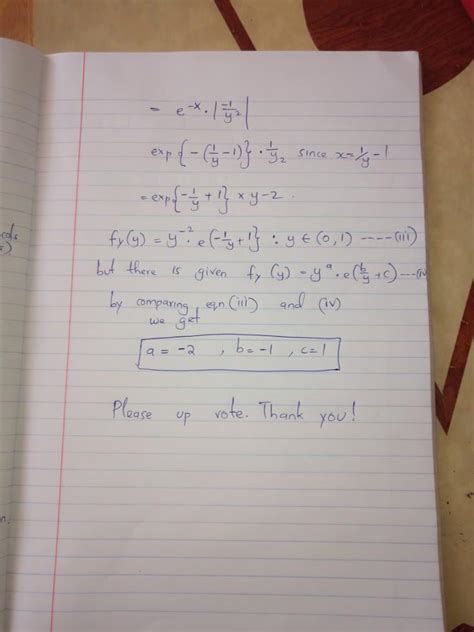 = e^-x · |-1/y²|
exp {-(1/y - 1)} · 1/y² since x = 1/y - 1
= exp{-1/y + 1} × y-2 .
fy(y) = y^-2 · e{-1/y + 1} : y ∈ (0, 1) ----- (iii)
but there is given fy (y) = y^a · e(b/y + c) --- (iv
by comparing eqn (iii) and (iv)
we get
a = -2 , b = -1 , c = 1
Please up vote. Thank you!